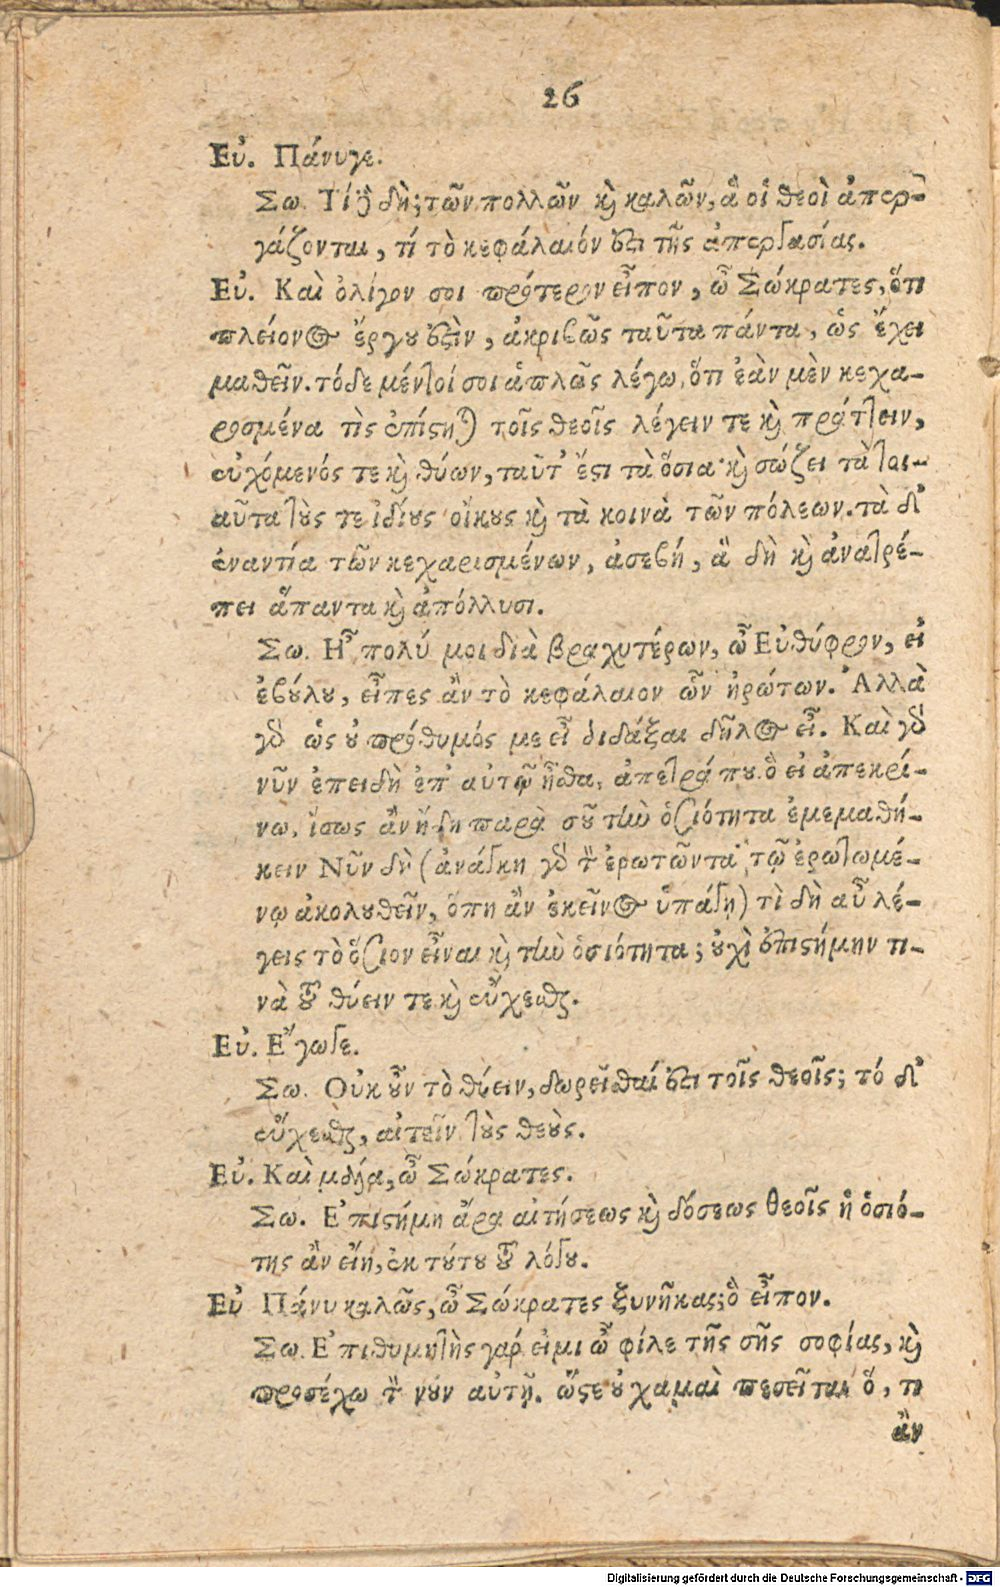 26
Εὐ. Πάνυγε.
Σω. Τί δὴ; τῶν πολλῶν καὶ καλῶν, ἃ οἱ θεοὶ ἀπερ-
γάζονται, τί τὸ κεφάλαιόν ἐστι τῆς ἀπεργασίας.
Εὐ. Καὶ ὀλίγον σοι πρότερον εἶπον, ὦ Σώκρατες, ὅτι
πλείονος ἔργου ἐστὶν, ἀκριβῶς ταῦτα πάντα, ὡς ἔχει
μαθεῖν. τόδε μέντοί σοι ἁπλῶς λέγω, ὅτι ἐὰν μὲν κεχα-
ρισμένα τὶς ἐπίστηται τοῖς θεοῖς λέγειν τε καὶ πράττειν,
εὐχόμενός τε καὶ θύων, ταῦτ' ἔστι τὰ ὅσια· καὶ σώζει τὰ τοι-
αῦτα τούς τε ἰδίους οἴκους καὶ τὰ κοινὰ τῶν πόλεων. τὰ δ'
ἐναντία τῶν κεχαρισμένων, ἀσεβῆ, ἃ δὴ καὶ ἀνατρέ-
πει ἅπαντα καὶ ἀπόλλυσι.
Σω. Η῏ πολύ μοι διὰ βραχυτέρων, ὦ Εὐθύφρον, εἰ
ἐβούλου, εἶπες ἂν τὸ κεφάλαιον ὧν ἠρώτων. Ἀλλὰ
γὰρ ὡς οὐ πρόθυμός με εἶ διδάξαι δῆλος εἶ. Καὶ γὰρ
νῦν ἐπειδὴ ἐπ' αὐτῷ ἦσθα, ἀπετράπου. ὃ εἰ ἀπεκρί-
νω, ἴσως ἂν ἤδη παρὰ σοῦ τὴν ὁσιότητα ἐμεμαθή-
κειν Νῦν δὲ (ἀνάγκη γὰρ τὸν ἐρωτῶντα τῷ ἐρωτωμέ-
νῳ ἀκολουθεῖν, ὅπη ἂν ἐκεῖνος ὑπάγῃ) τὶ δὴ αὖ λέ-
γεις τὸ ὅσιον εἶναι καὶ τὴν ὁσιότητα; οὐχὶ ἐπιστήμην τι-
νὰ τοῦ θύειν τε καὶ εὔχεσθαι.
Εὐ. Ε῎γωγε.
Σω. Οὐκοῦν τὸ θύειν, δωρεῖσθαί ἐστι τοῖς θεοῖς; τό δ'
εὔχεσθαι, αἰτεῖν τοὺς θεοὺς.
Εὐ. Καὶ μάλα, ὦ Σώκρατες.
Σω. Ε᾿πιστήμη ἄρα αἰτήσεως καὶ δόσεως θεοῖς ἡ ὁσιό-
της ἂν εἴη, ἐκ τούτου τοῦ λόγου.
Εὐ Πάνυ καλῶς, ὦ Σώκρατες ξυνῆκας; ὃ εἶπον.
Σω. Ε᾿πιθυμητὴς γάρ εἰμι ὦ φίλε τῆς σῆς σοφίας, καὶ
προσέχω τὸν νοῦν αὐτῇ. ὥστε οὐ χαμαὶ πεσεῖται ὅ, τι
ἂν
Digitalisierung gefördert durch die Deutsche Forschungsgemeinschaft - DFG